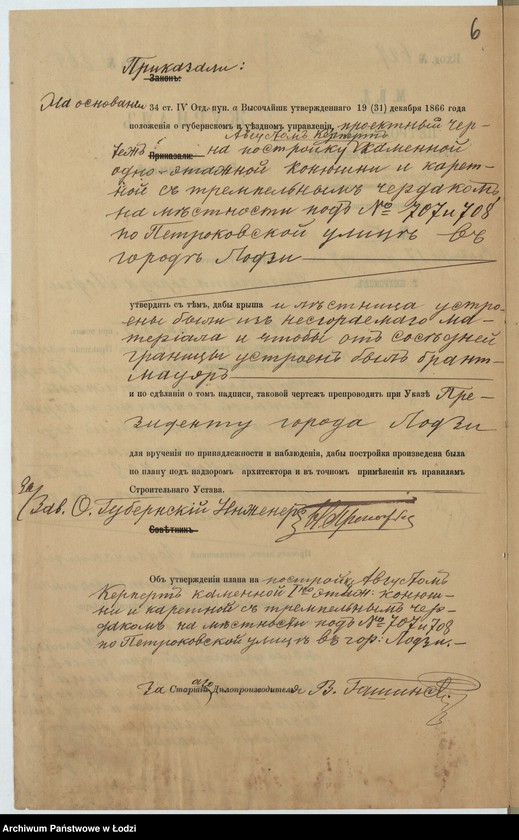 6
Приказали:
Законъ:
На основаніи 34 ст. IV Отд. пун. а Высочайше утвержденнаго 19 (31) декабря 1866 года
положенія о губернскомъ и уѣздномъ управленіи, проектный чер-
Августомъ Керпертъ
тежъ Приказали: на постройку каменной
одно-этажной конюшни и карет-
ной съ тремпельнымъ чердакомъ
на мѣстности подъ № 707 и 708
по Петроковской улицѣ въ
городѣ Лодзи
утвердить съ тѣмъ, дабы крыша и лѣстница устро-
ены были изъ несгораемаго ма-
теріала и чтобы отъ сосѣдней
границы устроенъ былъ брант-
мауеръ
и по сдѣланіи о томъ надписи, таковой чертежъ препроводить при Указѣ Пре-
зиденту города Лодзи
для врученія по принадлежности и наблюденія, дабы постройка произведена была
по плану подъ надзоромъ архитектора и въ точномъ примѣненіи къ правиламъ
Строительнаго Устава.
За/ Зав. О. Губернскій Инженеръ
Совѣтникъ
Объ утвержденіи плана на постройку Августомъ
Керпертъ каменной 1но этаж: конюш-
ни и каретной съ тремпельнымъ чер-
дакомъ на мѣстности подъ № 707 и 708
по Петроковской улицѣ въ гор: Лодзи.
За Старшаго Дѣлопроизводителя В.
Archiwum Państwowe w Łodzi